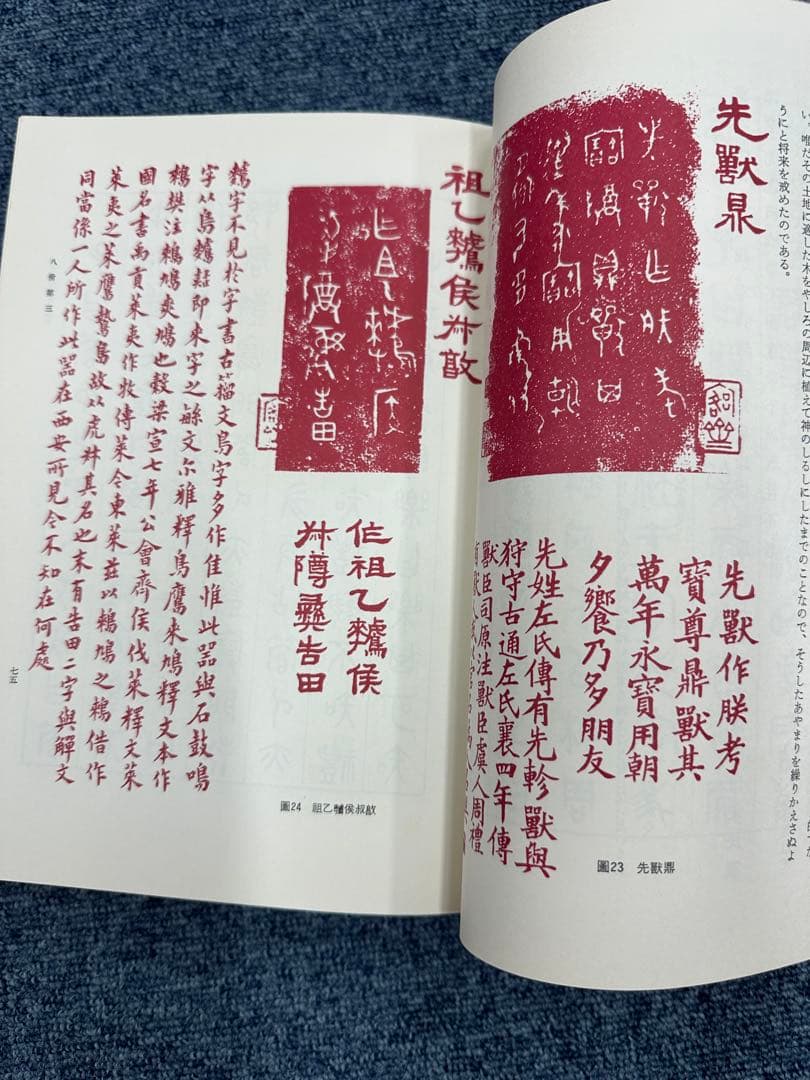 い。唯だその土地に適した木をやしろの周辺に植えて神のしるしにしたまでのことなので、そうしたあやまりを繰りかえさぬよ
うにと将来を戒めたのである。
先獸鼎
先獸作朕考
寶尊鼎獸其
萬年永寶用朝
夕饗乃多朋友
先姓左氏傳有先軫獸與
狩守古通左氏襄四年傳
獸臣司原注獸臣虞人周禮
圖23 先獸鼎
祖乙鶒侯叔敃
作祖乙鶒侯
叔障彝吉田
圖24 祖乙鶒侯叔敃
字不見於字書古籀文鳥字多作隹惟此器與石鼓鳴
字从鳥鶒𪄴即來字之緐文尒雅釋鳥鷹來鳩釋文本作
鶆樊注鶆鳩爽鳩也穀梁宣七年公會齊侯伐萊釋文萊
國名書禹貢萊夷作牧傳萊今東萊茲以鶆鳩之鶆借作
萊夷之萊鷹鷙鳥故以虎叔其名也末有吉田二字與觶文
同當係一人所作此器在西安所見今不知在何處
八佾第三
七五